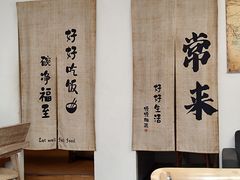 好好吃饭
碗净福至
Eat well
常来
好好生活